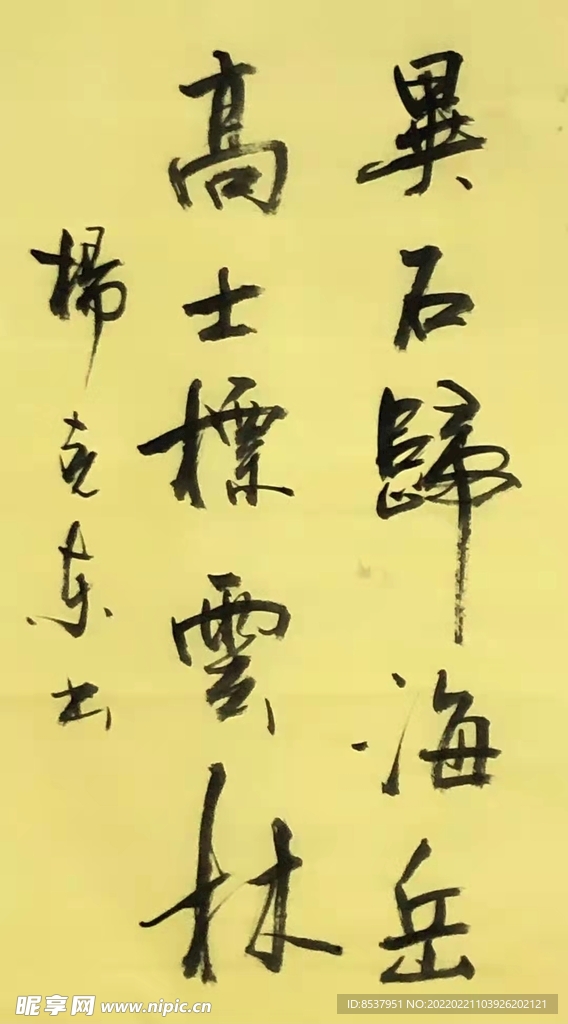 異石歸海岳
高士標雲林
楊克东书
昵享网 www.nipic.cn
ID:8537951 NO:20220221103926202121